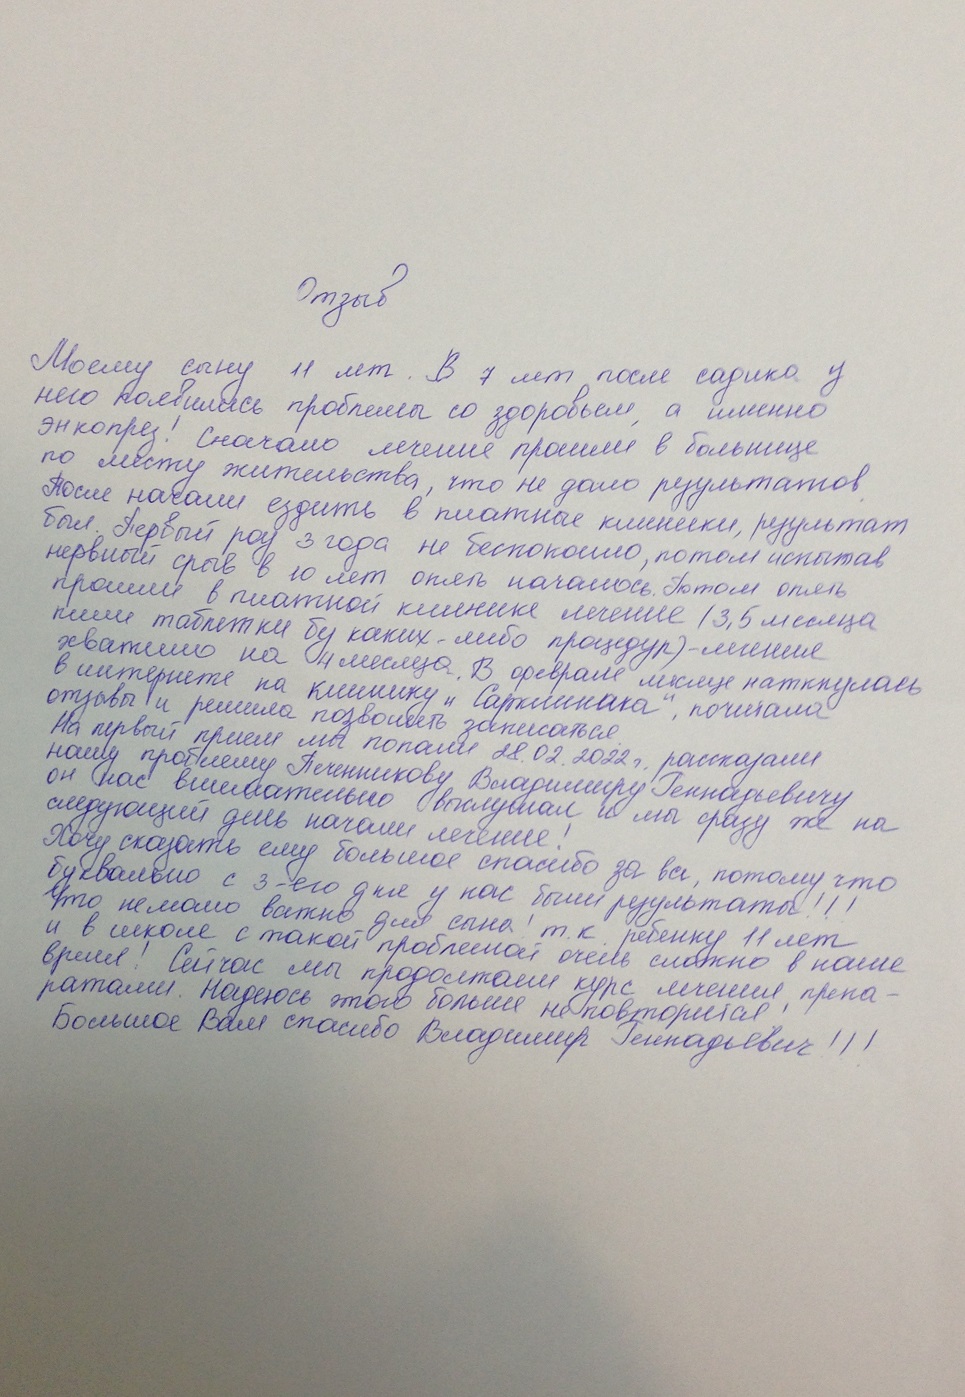 Отзыв
Моему сыну 11 лет. В 7 лет после садика у
него появились проблемы со здоровьем, а именно
энкопрез! Сначало лечение прошли в больнице
по месту жительства, что не дало результатов.
После начали ездить в платные клиники, результат
был. Первый раз 3 года не беспокоило, потом испытав
нервный срыв в 10 лет опять началось. Потом опять
прошли в платной клинике лечение (3,5 месяца
пили таблетки без каких-либо процедур)-лечения
хватило на 4 месяца. В феврале месяце наткнулась
в интернете на клинику „Сарклиника", почитала
отзывы и решила позвонить записаться.
На первый прием мы попали 28.02.2022г. рассказали
нашу проблему Печенникову Владимиру Геннадьевичу
он нас внимательно выслушал и мы сразу же на
следующий день начали лечение!
Хочу сказать ему большое спасибо за всё, потому что
буквально с 3-его дня у нас были результаты!!!
Что немало важно для сына! т.к. ребенку 11 лет
и в школе с такой проблемой очень сложно в наше
время! Сейчас мы продолжаем курс лечения, препа-
ратами. Надеюсь этого больше не повторится!
Большое Вам спасибо Владимир Геннадьевич!!!